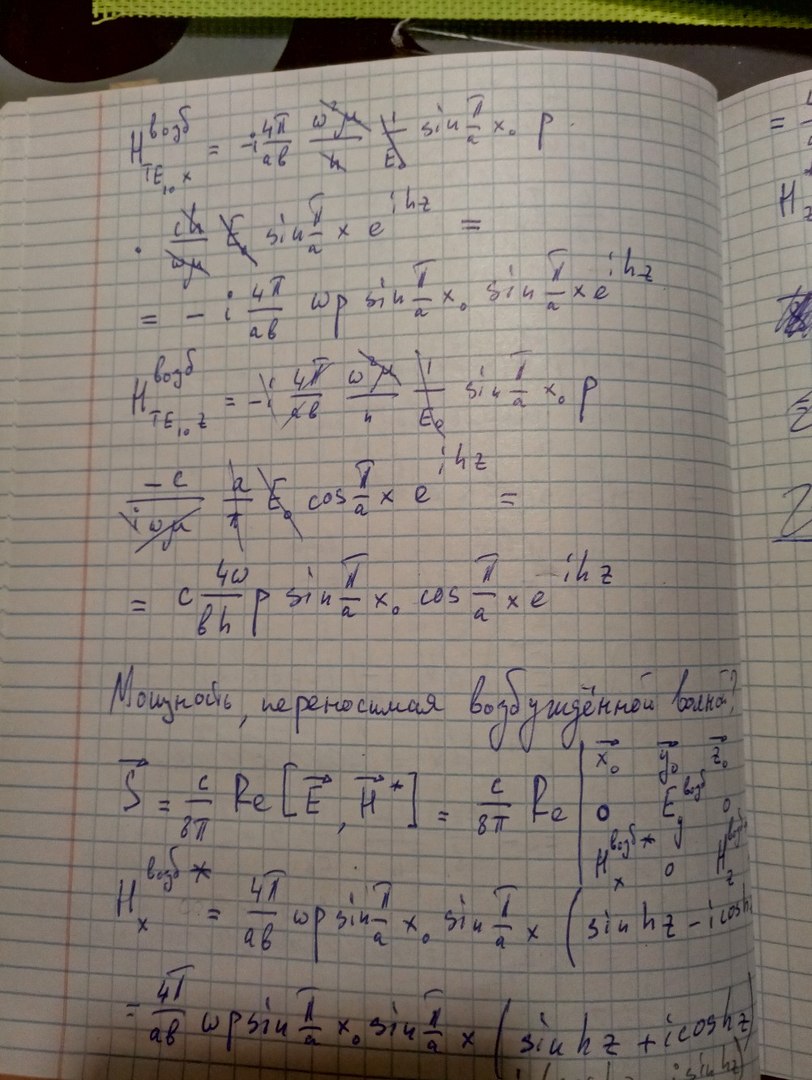 H^{возб}_{TE_{10} x} = -i \frac{4π}{ab} \frac{ω^2 μ}{h} \frac{1}{E_0} sin \frac{π}{a} x_0 p ·
· \frac{ch}{ωμ} E_0 sin \frac{π}{a} x e^{ihz} =
= - i \frac{4π}{ab} ωp sin \frac{π}{a} x_0 sin \frac{π}{a} x e^{ihz}
H^{возб}_{TE_{10} z} = -i \frac{4π}{ab} \frac{ω^2 μ}{h} \frac{1}{E_0} sin \frac{π}{a} x_0 p
\frac{-c}{iωμ} \frac{a}{π} E_0 cos \frac{π}{a} x e^{ihz} =
= c \frac{4ω}{bh} p sin \frac{π}{a} x_0 cos \frac{π}{a} x e^{ihz}
Мощность, переносимая возбуждённой волной?
\vec{S} = \frac{c}{8π} Re [\vec{E}, \vec{H}^*] = \frac{c}{8π} Re | \vec{x_0} \vec{y_0} \vec{z_0}
0 E^{возб}_y 0
H^{возб*}_x 0 H^{возб}_z
H^{возб*}_x = \frac{4π}{ab} ωp sin \frac{π}{a} x_0 sin \frac{π}{a} x (sin hz - i cos h
= \frac{4π}{ab} ωp sin \frac{π}{a} x_0 sin \frac{π}{a} x (sin hz + i cos hz)
= 
H